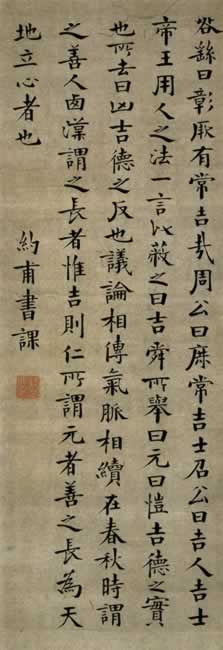 咎繇曰彰厥有常吉哉周公曰庶常吉士召公曰吉人吉士
帝王用人之法一言以蔽之曰吉舜所舉曰元曰愷吉德之實
也所去曰凶吉德之反也議論相傳氣脈相續在春秋時謂
之善人西漢謂之長者惟吉則仁所謂元者善之長為天
地立心者也
約甫書課